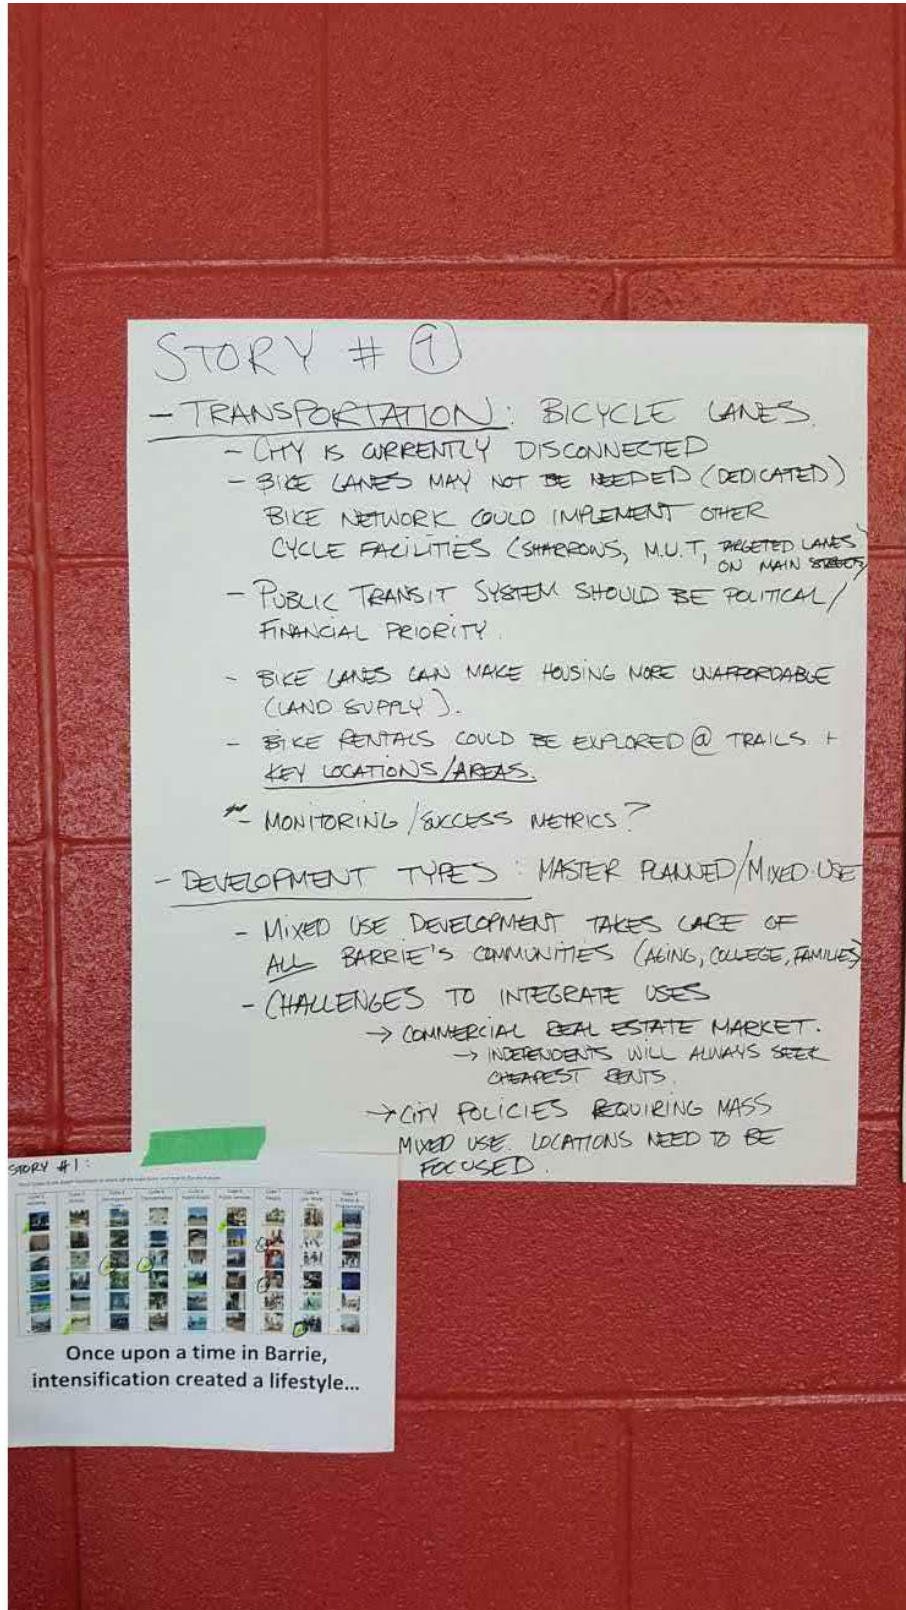 STORY # 1
- TRANSPORTATION: BICYCLE LANES.
- CITY IS CURRENTLY DISCONNECTED
- BIKE LANES MAY NOT BE NEEDED (DEDICATED)
BIKE NETWORK COULD IMPLEMENT OTHER
CYCLE FACILITIES (SHARROWS, M.U.T, TARGETED LANES
ON MAIN STREETS)
- PUBLIC TRANSIT SYSTEM SHOULD BE POLITICAL/
FINANCIAL PRIORITY.
- BIKE LANES CAN MAKE HOUSING MORE UNAFFORDABLE
(LAND SUPPLY).
- BIKE RENTALS COULD BE EXPLORED @ TRAILS +
KEY LOCATIONS/AREAS.
- MONITORING/SUCCESS METRICS?
- DEVELOPMENT TYPES: MASTER PLANNED/MIXED USE
- MIXED USE DEVELOPMENT TAKES CARE OF
ALL BARRIE'S COMMUNITIES (AGING, COLLEGE, FAMILIES)
- CHALLENGES TO INTEGRATE USES
→ COMMERCIAL REAL ESTATE MARKET.
→ INDEPENDENTS WILL ALWAYS SEEK
CHEAPEST RENTS.
→ CITY POLICIES REQUIRING MASS
MIXED USE. LOCATIONS NEED TO BE
FOCUSED.
STORY #1:
Once upon a time in Barrie,
intensification created a lifestyle...